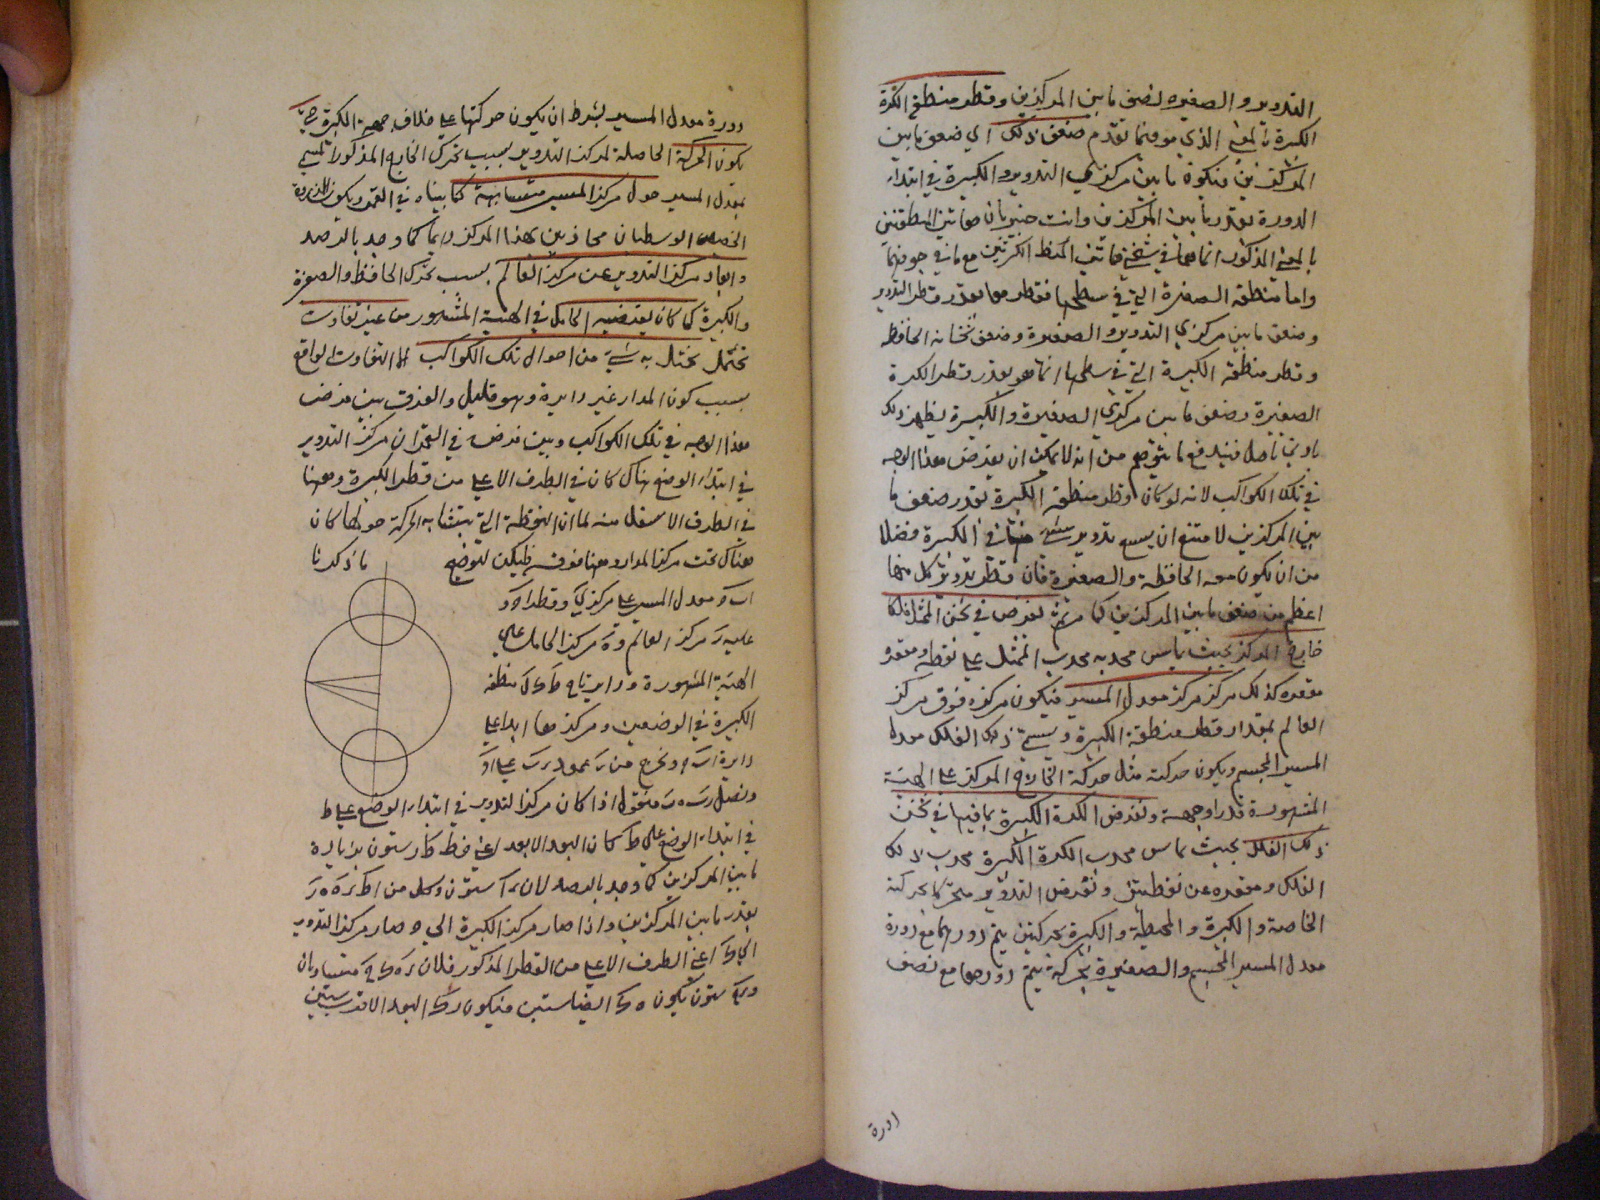 التدوير والصغيره لنصف ما بين المركزين وقطر منطقة الكرة
الكبيرة بالمعنى الذي هو فيما تقدم ضعف ذلك اي ضعف ما بين
المركزين فيكون ما بين مركزي التدوير والكبيرة في ابتداء
الدورة بقدر ما بين المركزين وانت خبير بان هاتين المنطقتين
بالمعنى المذكور انما هما في ثخن الكرتين مع ما في جوفهما
واما منطقة الصغيرة التي في سطحها فقطرها بقدر قطر التدوير
وضعف ما بين مركزي التدوير والصغيرة وضعف ثخانة الحافظة
وقطر منطقة الكبيرة التي في سطحها انما هو بقدر قطر الكرة
الصغيرة وضعف ما بين مركزي الصغيرة والكبيرة يظهر ذلك
بادنى تأمل فيندفع ما يتوهم من انه لا يمكن ان يفرض هذا الوجه
في تلك الكواكب لانه لو كان قطر منطقة الكبيرة بقدر ضعف ما
بين المركزين لامتنع ان يسع تدوير في الكبيرة فضلا
من ان يكون معه الحافظة والصغيرة فان قطر تدوير كل منها
اعظم من ضعف ما بين المركزين كما مر ثم نفرض في ثخن الممثل فلكا
خارج المركز بحيث يماس محدبه محدب الممثل على نقطة ومقعره
مقعره كذلك مركزه مركز معدل المسير فيكون مركزه فوق مركز
العالم بمقدار قطر منطقة الكبيرة ويسمى ذلك الفلك معدل
المسير المجسم ويكون حركته مثل حركة الخارج المركز على الهيئة
المشهورة قدرا وجهة ونفرض الكرة الكبيرة بما فيها في ثخن
ذلك الفلك بحيث يماس محدب الكرة الكبيرة محدب ذلك
الفلك ومقعره عن نقطتين ونفرض التدوير متحركا بحركته
الخاصة والكبيرة والمحيطة والكبيرة بحركتين يتم دورهما مع دورة
معدل المسير المجسم والصغيرة بحركة يتم دورها مع نصف
دورة
دورة معدل المسير بشرط ان يكون حركتها على خلاف جهة الكبيرة حتى
يكون الحركة الحاصلة لمركز التدوير بسبب تحرك الخارج المذكور المسمى
بمعدل المسير حول مركز المسير متشابهة كما بيناه في القمر ويكون الذروة
والحضيض الوسطيان محاذيين لهذا المركز دايما كما وجد بالرصد
وابعاد مركز التدوير عن مركز العالم بسبب تحرك الحافظ والصغيرة
والكبيرة كما كان يقتضيه الحامل في الهيئة المشهورة من غير تفاوت
تختل به شيء من احوال تلك الكواكب الا التفاوت الواقع
بسبب كون المدار غير دايرة وهو قليل والفرق بين فرض
هذا الوجه في تلك الكواكب وبين فرضه في القمر ان مركز التدوير
في ابتداء الوضع هناك كان في الطرف الاعلى من قطر الكبيرة وههنا
في الطرف الاسفل منه لما ان النقطة التي يتشابه الحركة حولها كان
هناك تحت مركز المدار وههنا فوقه وليكن لتوضيح ما ذكرنا
اب معدل المسير على مركز وقطر ا
عليه ر مركز العالم و ه مركز الحامل على
الهيئة المشهورة ودايرتا ط ك ل منطقة
الكبيرة في الوضعين ومركزهما ابدا على
دايرة اب ونخرج من ر عمود رب على ا
ونصل فنقول اذا كان مركز التدوير في ابتداء الوضع على ط
في ابتداء الوضع على ط كان البعد الابعد اعني خط ط ر ستون بزيادة
ما بين المركزين كما وجد بالرصد لان ستون وكل من
بقدر ما بين المركزين واذا صار مركز الكبيرة الى صار مركز التدوير
الى ك اعني الطرف الاعلى من القطر المذكور فلان متساويان
ستون يكون ه ك ايضا ستين فيكون رك البعد الاقرب ستين